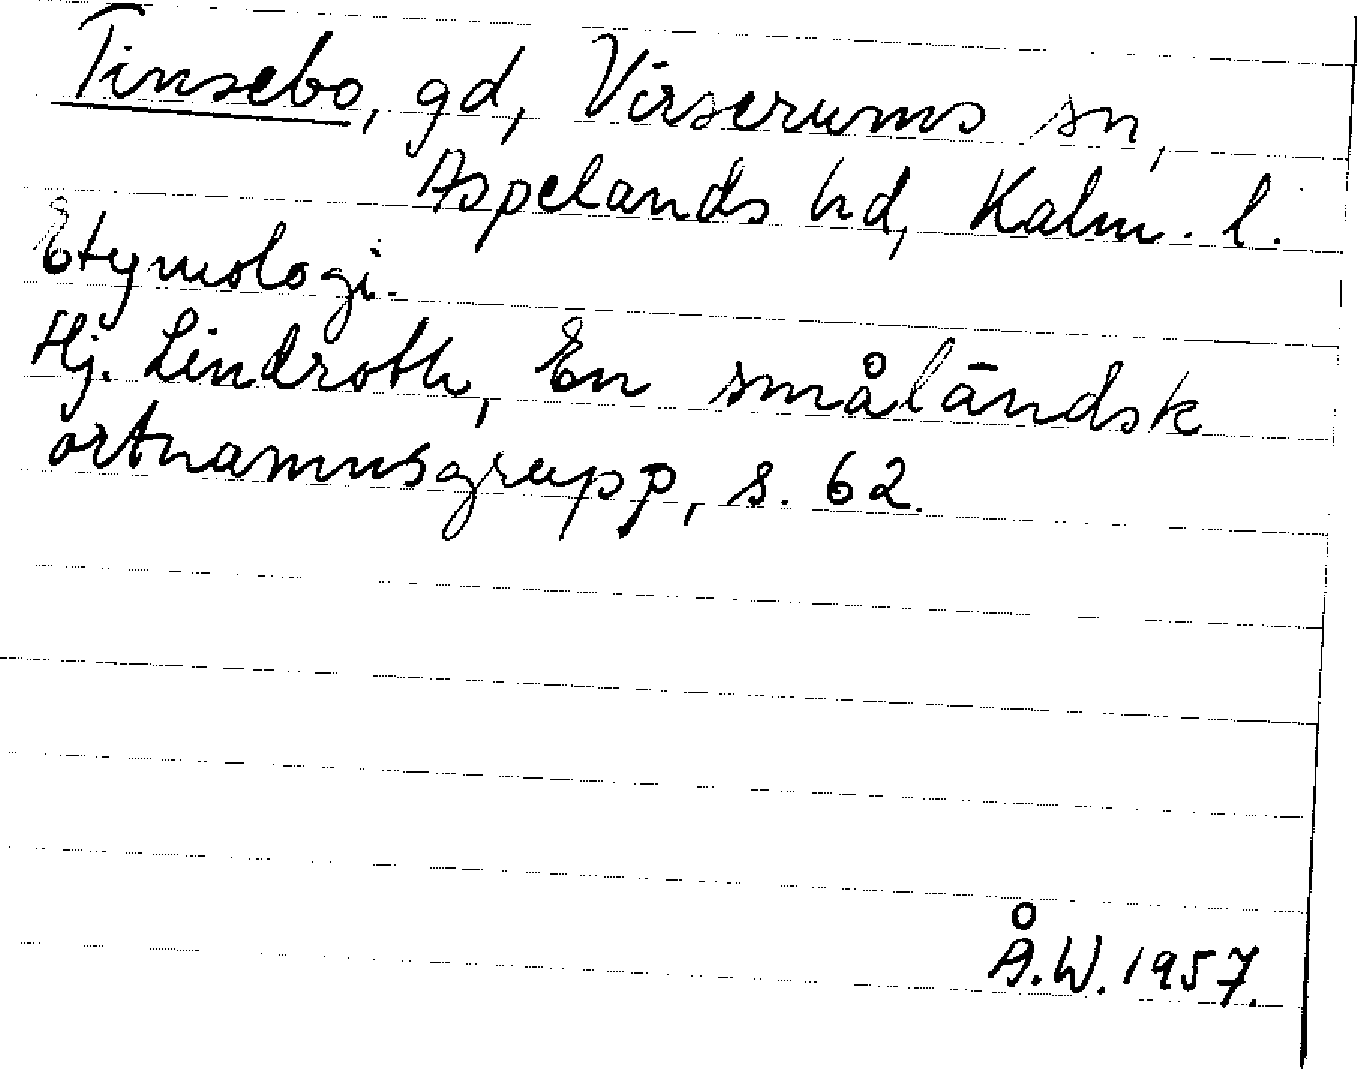 Tinsebo, gd, Virserums sn,
Aspelands hd, Kalm. l.
Etymologi.
Hj. Lindroth, En småländsk
ortnamnsgrupp, s. 62.
Å.W. 1957.